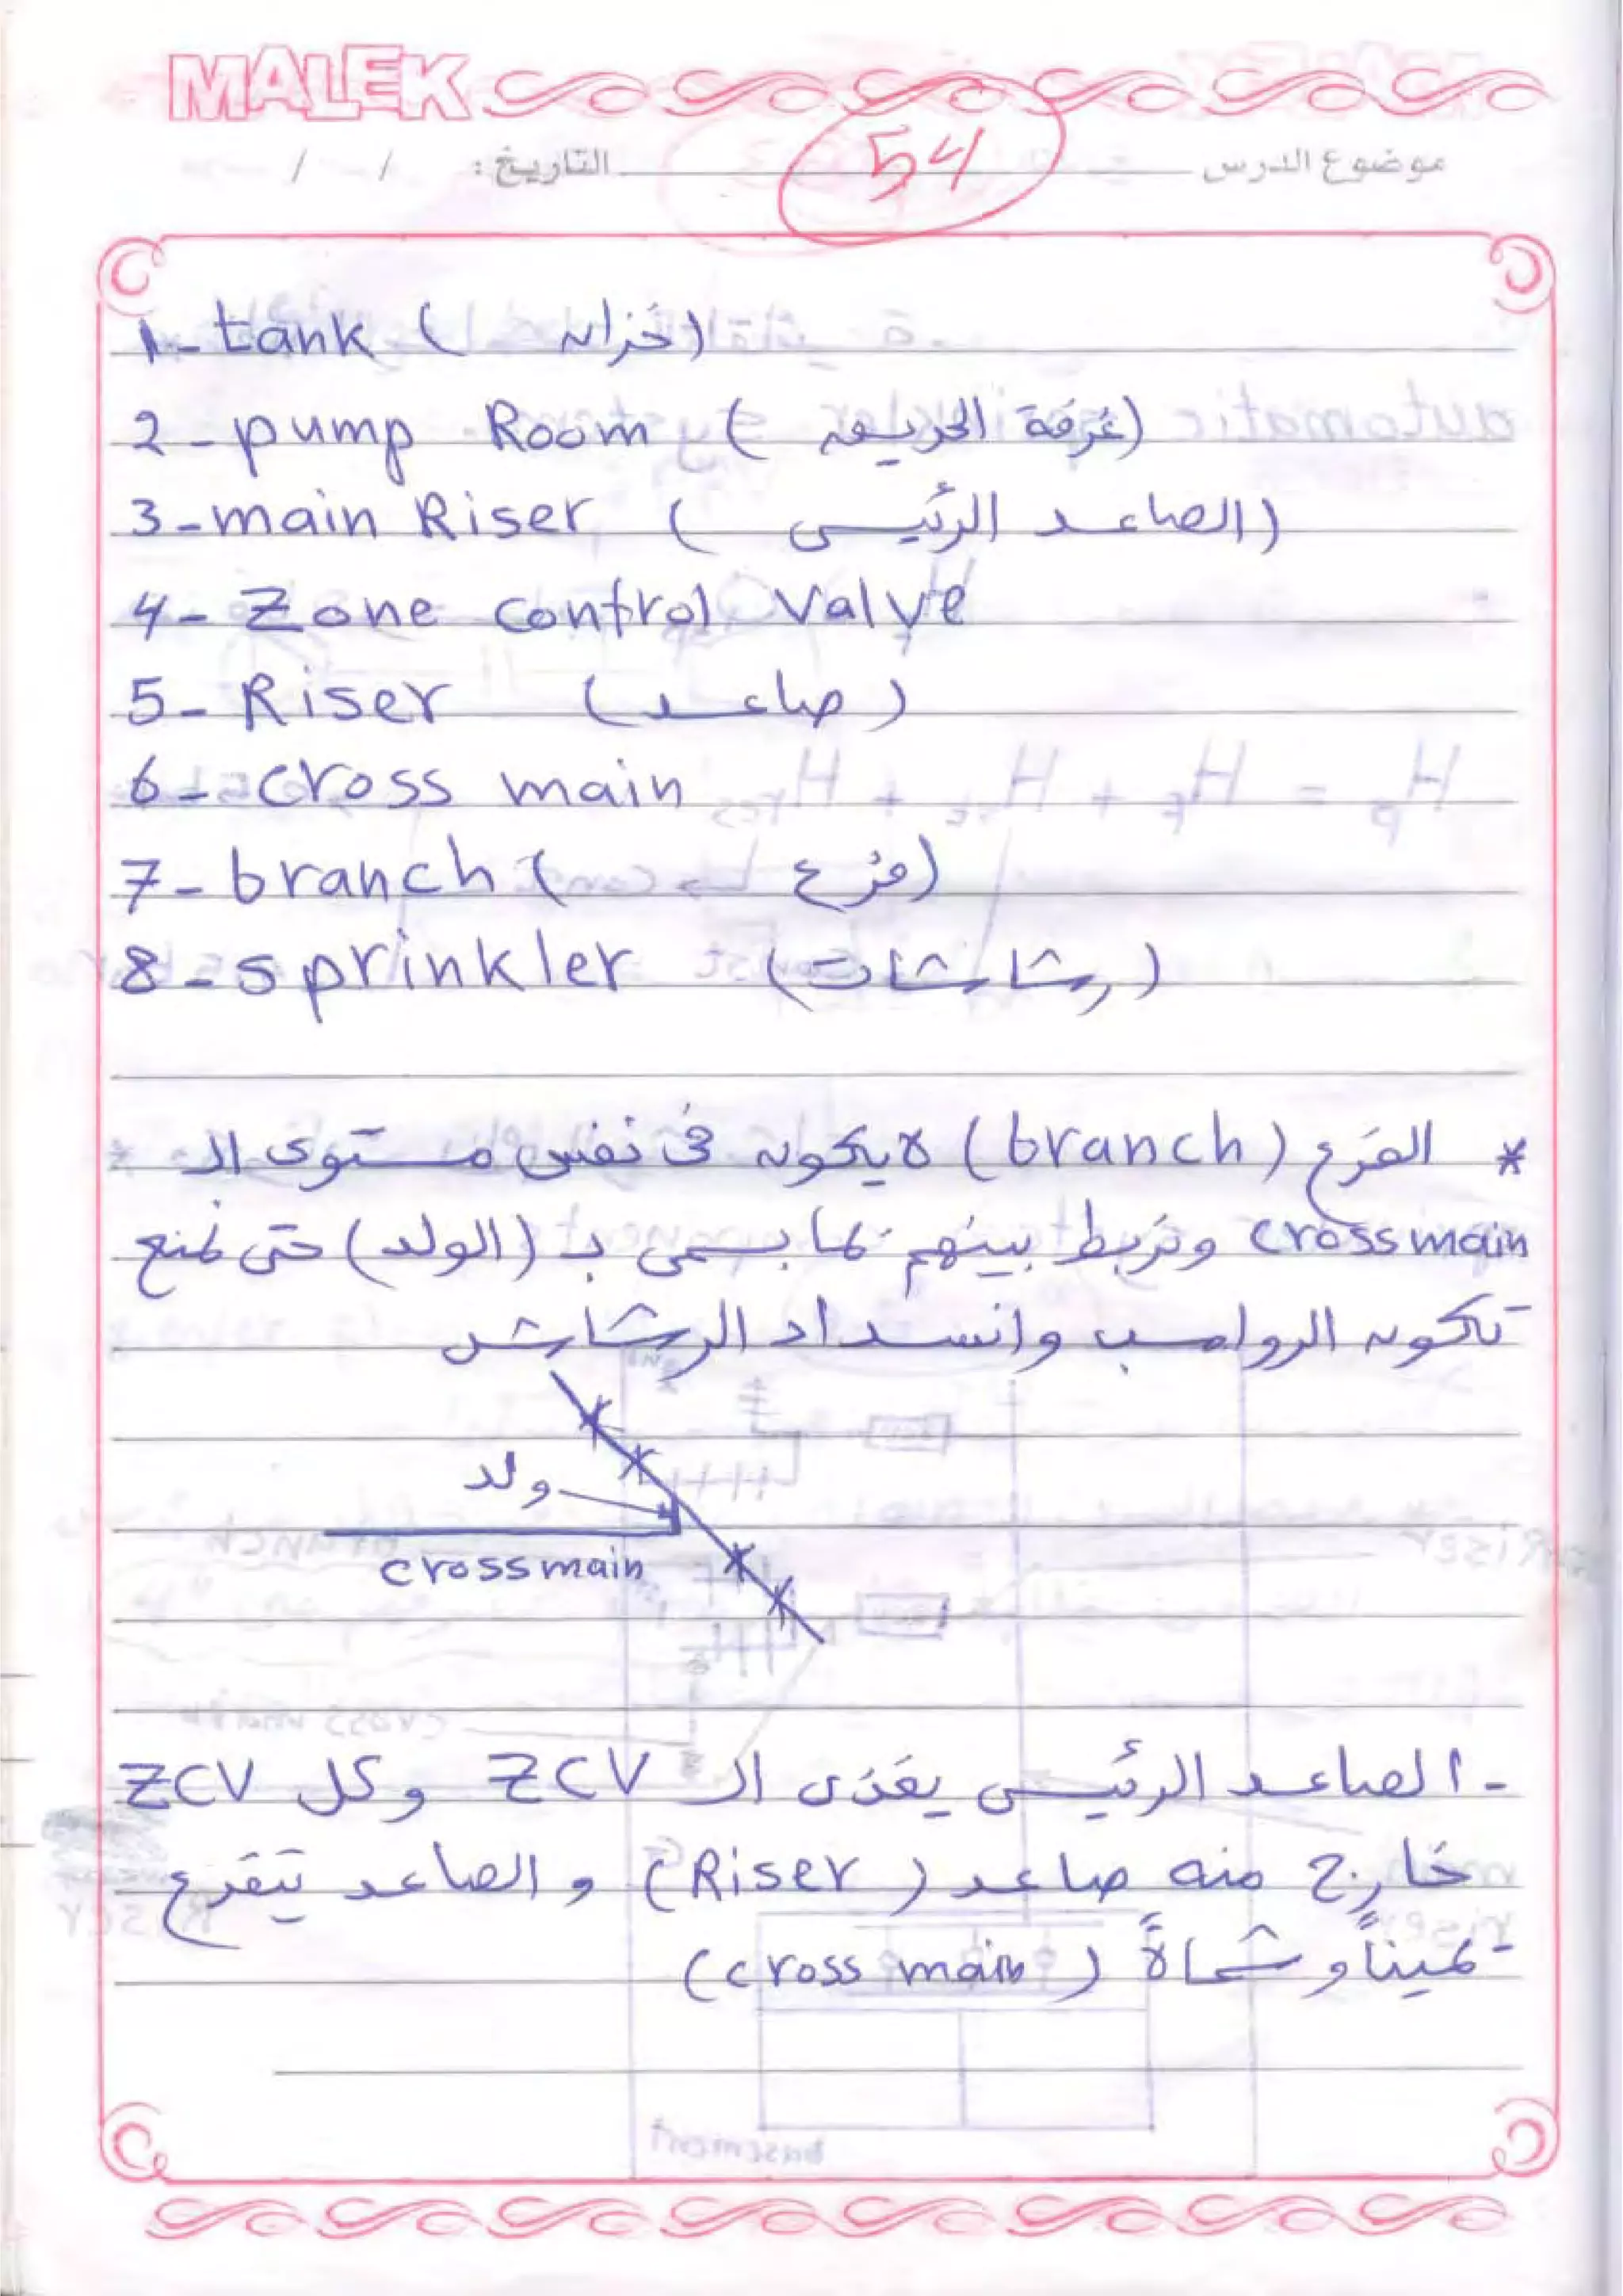 MALEK
موضوع الدرس 54 التاريخ: / /
1- tank (خزان)
2- pump Room (غرفة الحريق)
3- main Riser (الصاعد الرئيسى)
4- Zone control valve
5- Riser (صاعد)
6- cross main
7- branch (فرع)
8- sprinkler (رشاشات)
* الفرع (branch) لا يكون فى نفس مستوى الـ
cross main ونربط بينهم بما يسمى بـ (الولد) حتى نمنع
تكون الرواسب وانسداد الرشاش
ولد
cross main
- الصاعد الرئيسى يغذى الـ ZCV وكل ZCV
خارج منه صاعد (Riser) والصاعد يتفرع
يميناً وشمالاً (cross main)